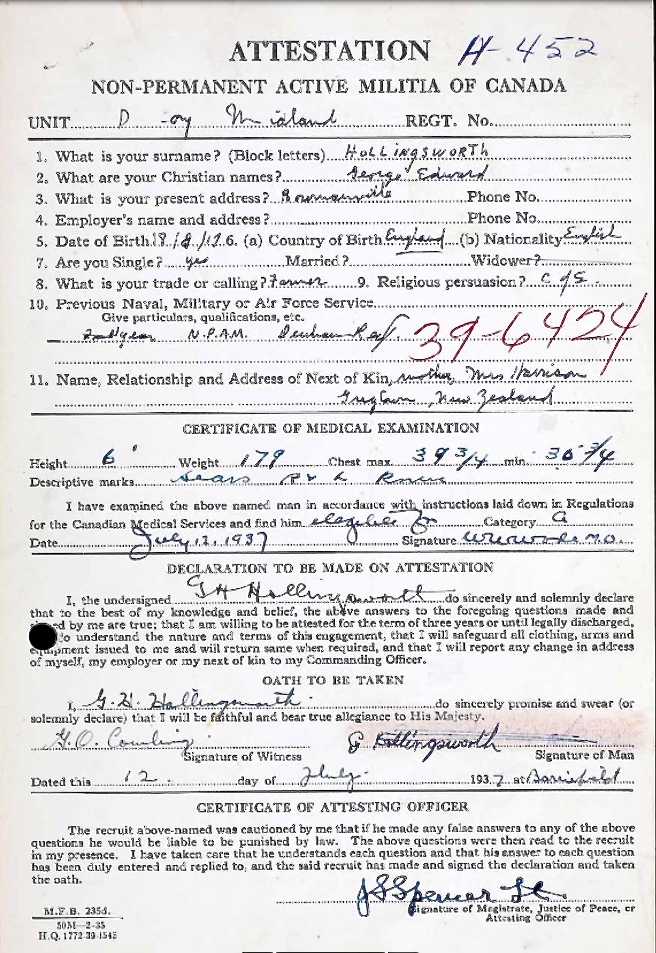 ATTESTATION H-452
NON-PERMANENT ACTIVE MILITIA OF CANADA
UNIT D Coy Midland REGT. No.
1. What is your surname? (Block letters) HOLLINGSWORTH
2. What are your Christian names? George Edward
3. What is your present address? Bowmanville Phone No.
4. Employer's name and address? Phone No.
5. Date of Birth (a) Country of Birth England (b) Nationality English
7. Are you Single? yes Married? Widower?
8. What is your trade or calling? Farmer 9. Religious persuasion? C of E.
10. Previous Naval, Military or Air Force Service.
Give particulars, qualifications, etc.
2nd year N.P.A.M. Durham Regt.
39-6424
11. Name, Relationship and Address of Next of Kin, mother, Mrs Harrison
Greytown, New Zealand
CERTIFICATE OF MEDICAL EXAMINATION
Height 6' Weight 179 Chest max. 39 3/4 min. 36 3/4
Descriptive marks Scars R & L Knees
I have examined the above named man in accordance with instructions laid down in Regulations
for the Canadian Medical Services and find him Category A
Date July 12, 1937 Signature M.O.
DECLARATION TO BE MADE ON ATTESTATION
I, the undersigned G H Hollingsworth do sincerely and solemnly declare
that to the best of my knowledge and belief, the above answers to the foregoing questions made and
signed by me are true; that I am willing to be attested for the term of three years or until legally discharged,
to understand the nature and terms of this engagement, that I will safeguard all clothing, arms and
equipment issued to me and will return same when required, and that I will report any change in address
of myself, my employer or my next of kin to my Commanding Officer.
OATH TO BE TAKEN
I, G. H. Hollingsworth do sincerely promise and swear (or
solemnly declare) that I will be faithful and bear true allegiance to His Majesty.
G.O. Cowling G Hollingsworth
Signature of Witness Signature of Man
Dated this 12 day of July 1937 at Barriefield
CERTIFICATE OF ATTESTING OFFICER
The recruit above-named was cautioned by me that if he made any false answers to any of the above
questions he would be liable to be punished by law. The above questions were then read to the recruit
in my presence. I have taken care that he understands each question and that his answer to each question
has been duly entered and replied to, and the said recruit has made and signed the declaration and taken
the oath.
JSSpencer Lt
Signature of Magistrate, Justice of Peace, or
Attesting Officer
M.F.B. 235d.
50M—2-35
H.Q. 1772-39-1545